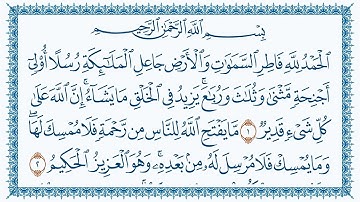 بِسْمِ ٱللَّهِ ٱلرَّحْمَٰنِ ٱلرَّحِيمِ
ٱلْحَمْدُ لِلَّهِ فَاطِرِ ٱلسَّمَٰوَٰتِ وَٱلْأَرْضِ جَاعِلِ ٱلْمَلَٰٓئِكَةِ رُسُلًا أُو۟لِىٓ
أَجْنِحَةٍ مَّثْنَىٰ وَثُلَٰثَ وَرُبَٰعَ ۚ يَزِيدُ فِى ٱلْخَلْقِ مَا يَشَآءُ ۚ إِنَّ ٱللَّهَ عَلَىٰ
كُلِّ شَىْءٍ قَدِيرٌ ١ مَّا يَفْتَحِ ٱللَّهُ لِلنَّاسِ مِن رَّحْمَةٍ فَلَا مُمْسِكَ لَهَا ۖ
وَمَا يُمْسِكْ فَلَا مُرْسِلَ لَهُۥ مِنۢ بَعْدِهِۦ ۚ وَهُوَ ٱلْعَزِيزُ ٱلْحَكِيمُ ٢